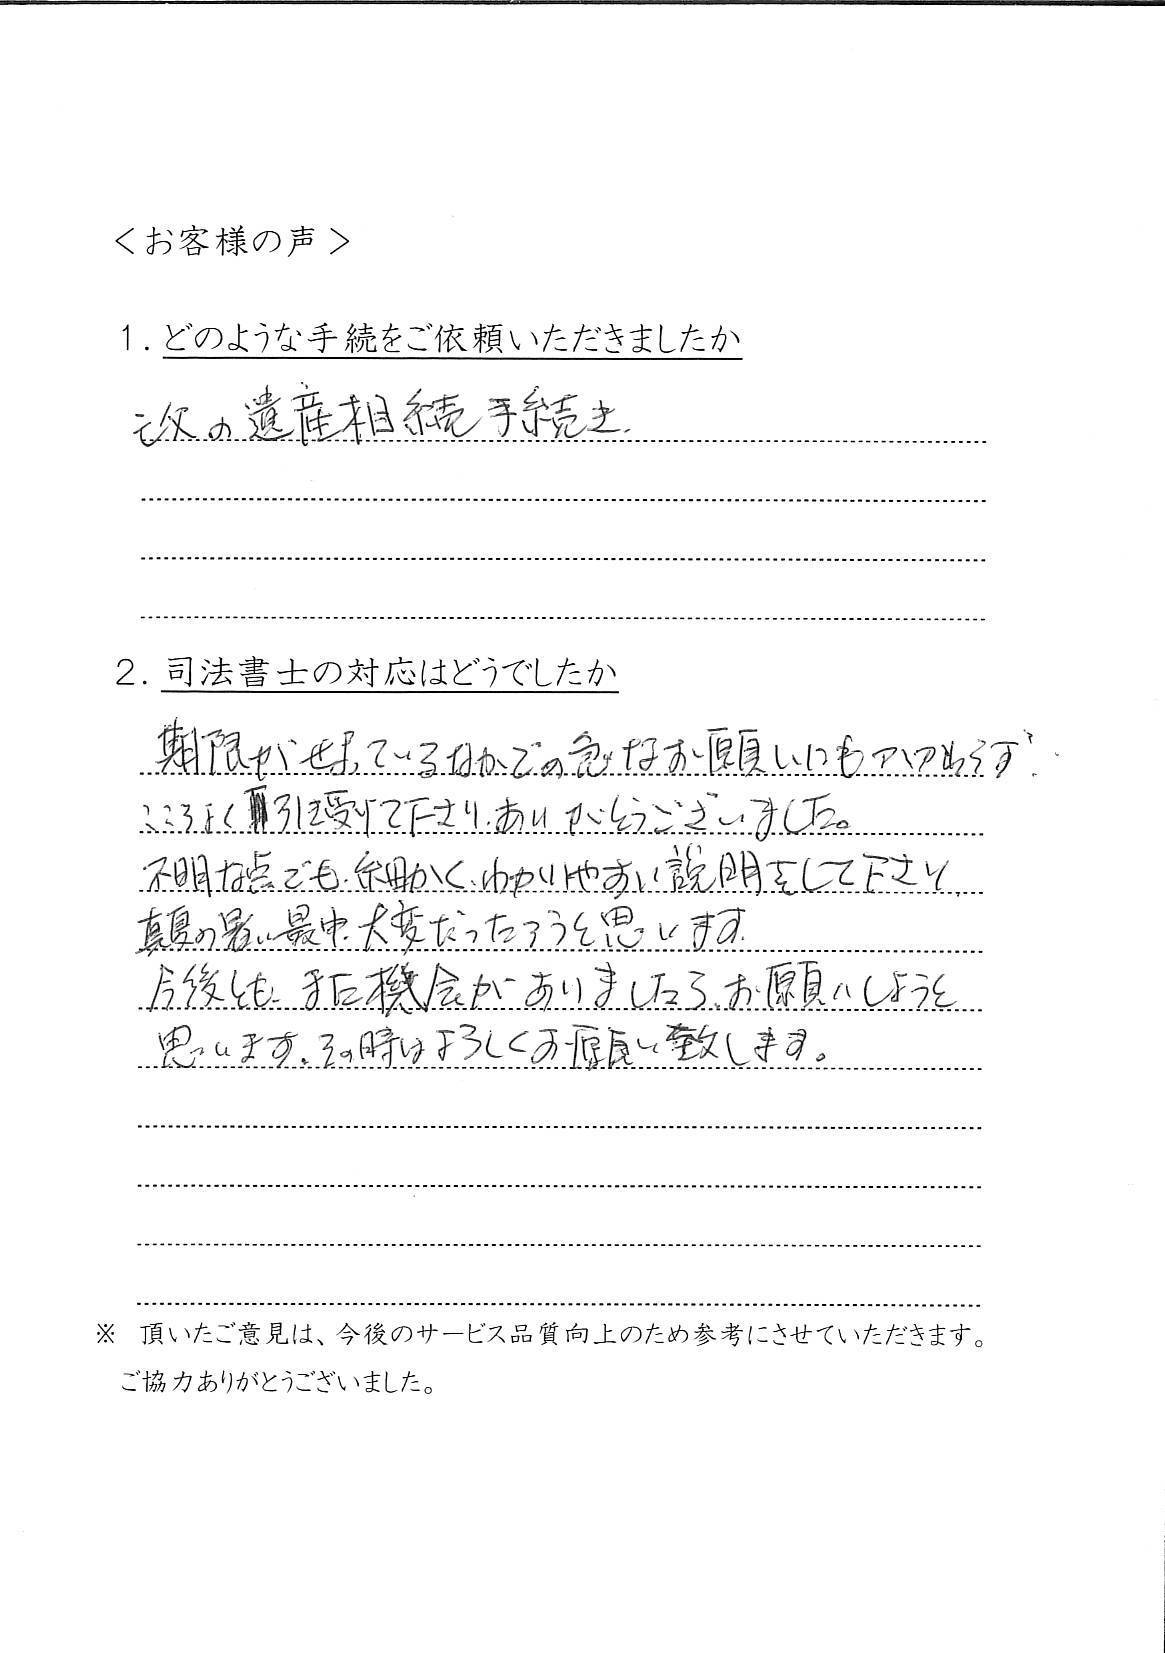 ＜お客様の声＞
1. どのような手続をご依頼いただきましたか
の遺産相続手続き.
2. 司法書士の対応はどうでしたか
期限がせまっているなかでの急なお願いにもかかわらず、
こころよく引き受けて下さり、ありがとうございました。
不明な点でも、細かく、わかりやすい説明をして下さり、
真夏の暑い最中、大変だったろうと思います。
今後とも、また機会がありましたら、お願いしようと
思います。その時はよろしくお願い致します。
※ 頂いたご意見は、今後のサービス品質向上のため参考にさせていただきます。
ご協力ありがとうございました。